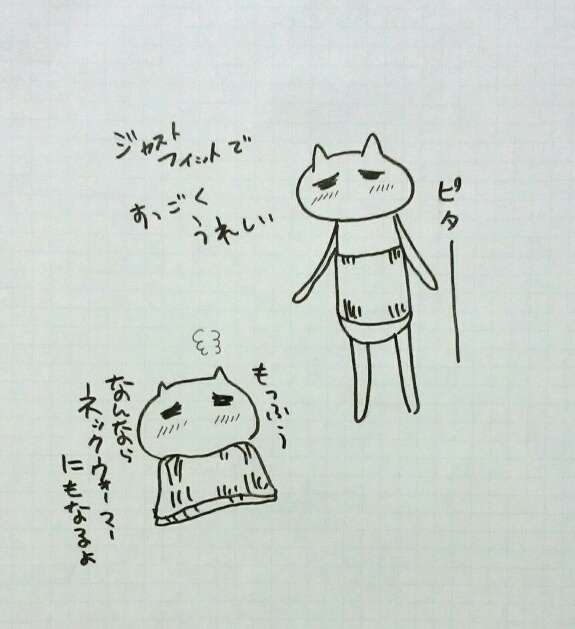 ジャスト
フィットで
すっごく
うれしい
ピターー
もっふぅ
なんなら
ネックウォーマー
にもなるよ